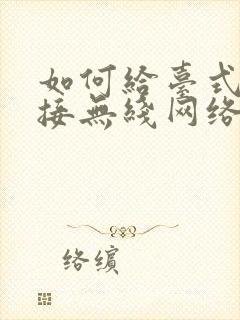 如何给臺式
接無綫网络
络缤